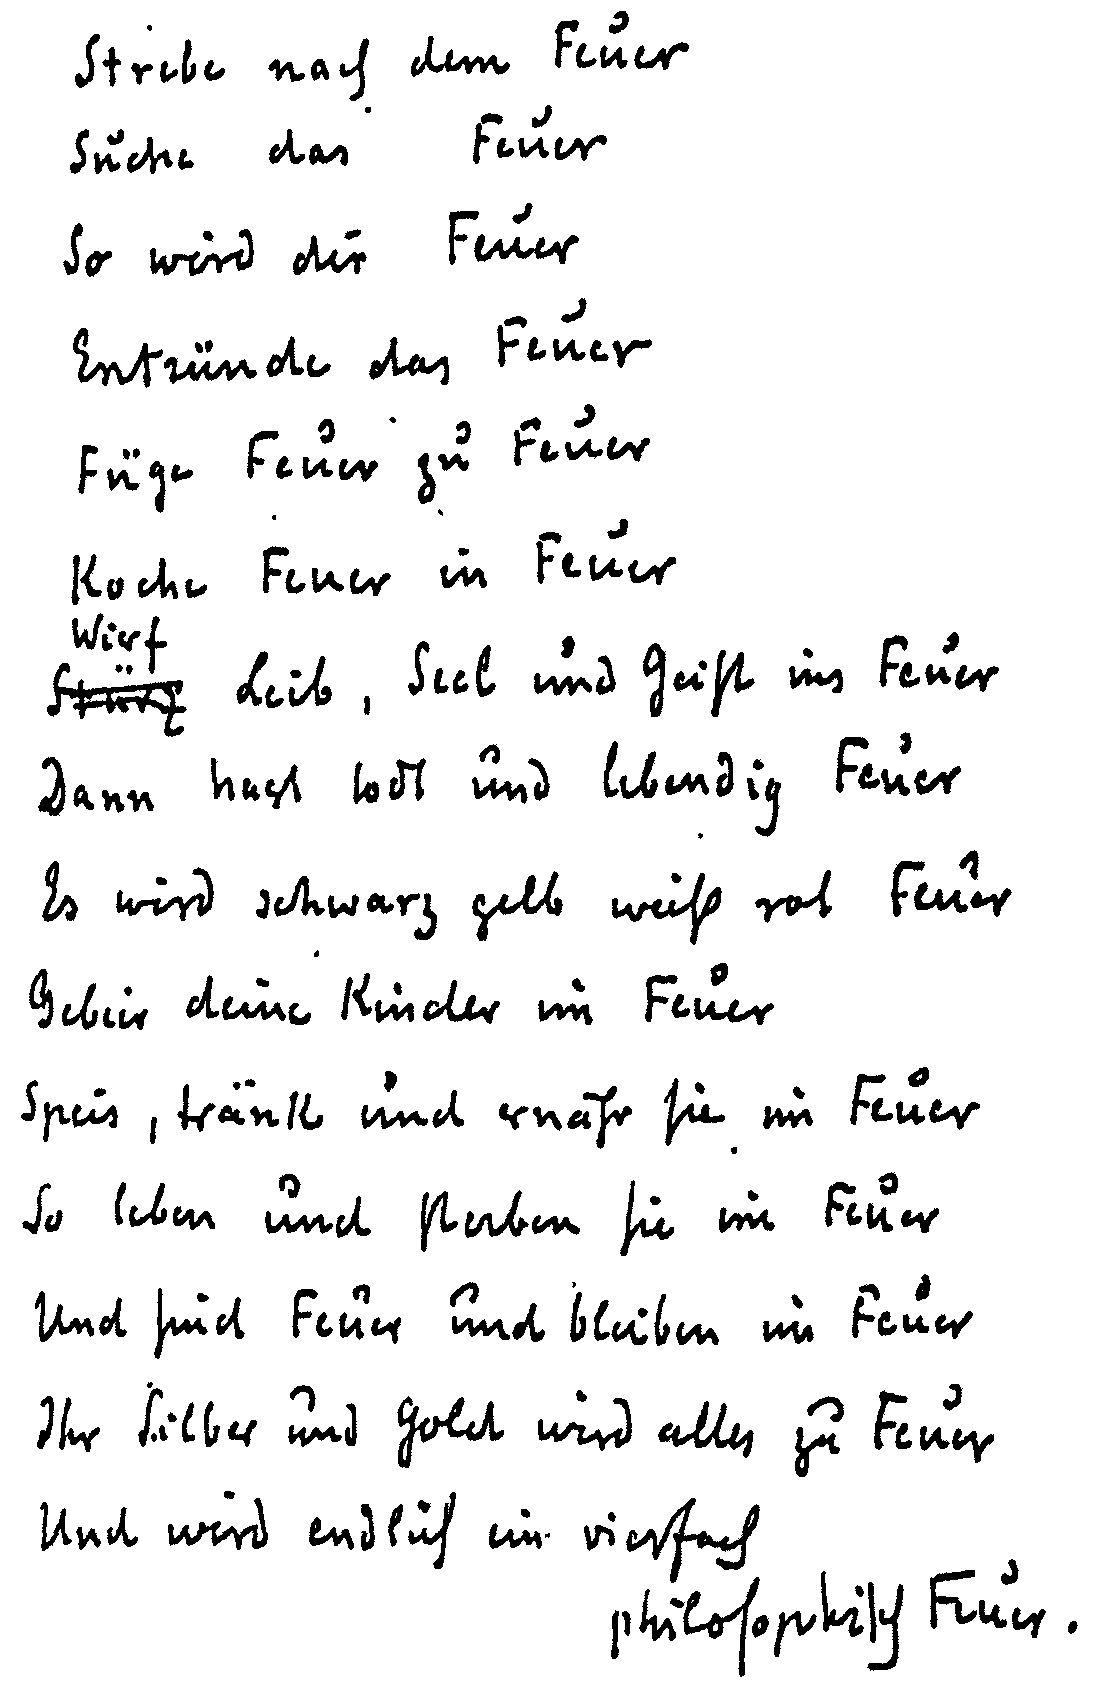 Strebe nach dem Feuer
Suche das Feuer
So wird dir Feuer
Entzünde das Feuer
Füge Feuer zu Feuer
Koche Feuer in Feuer
Wirf
Stürz Leib, Seel und Geist ins Feuer
Dann hast todt und lebendig Feuer
Es wird schwarz gelb weiß rot Feuer
Gebier deine Kinder im Feuer
Speis, tränk und ernähr sie im Feuer
So leben und sterben sie im Feuer
Und sind Feuer und bleiben im Feuer
Ihr Silber und Gold wird alles zu Feuer
Und wird endlich ein vierfach
philosophisch Feuer.